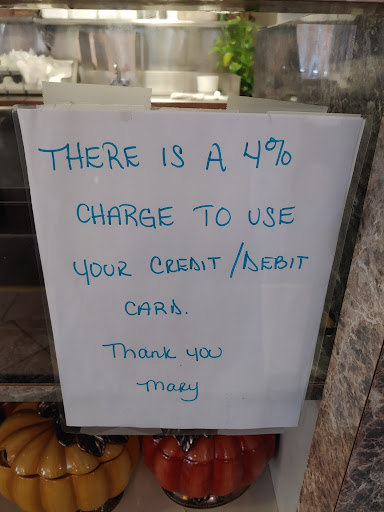 THERE IS A 4%
CHARGE TO USE
YOUR CREDIT/DEBIT
CARD.
Thank you
Mary